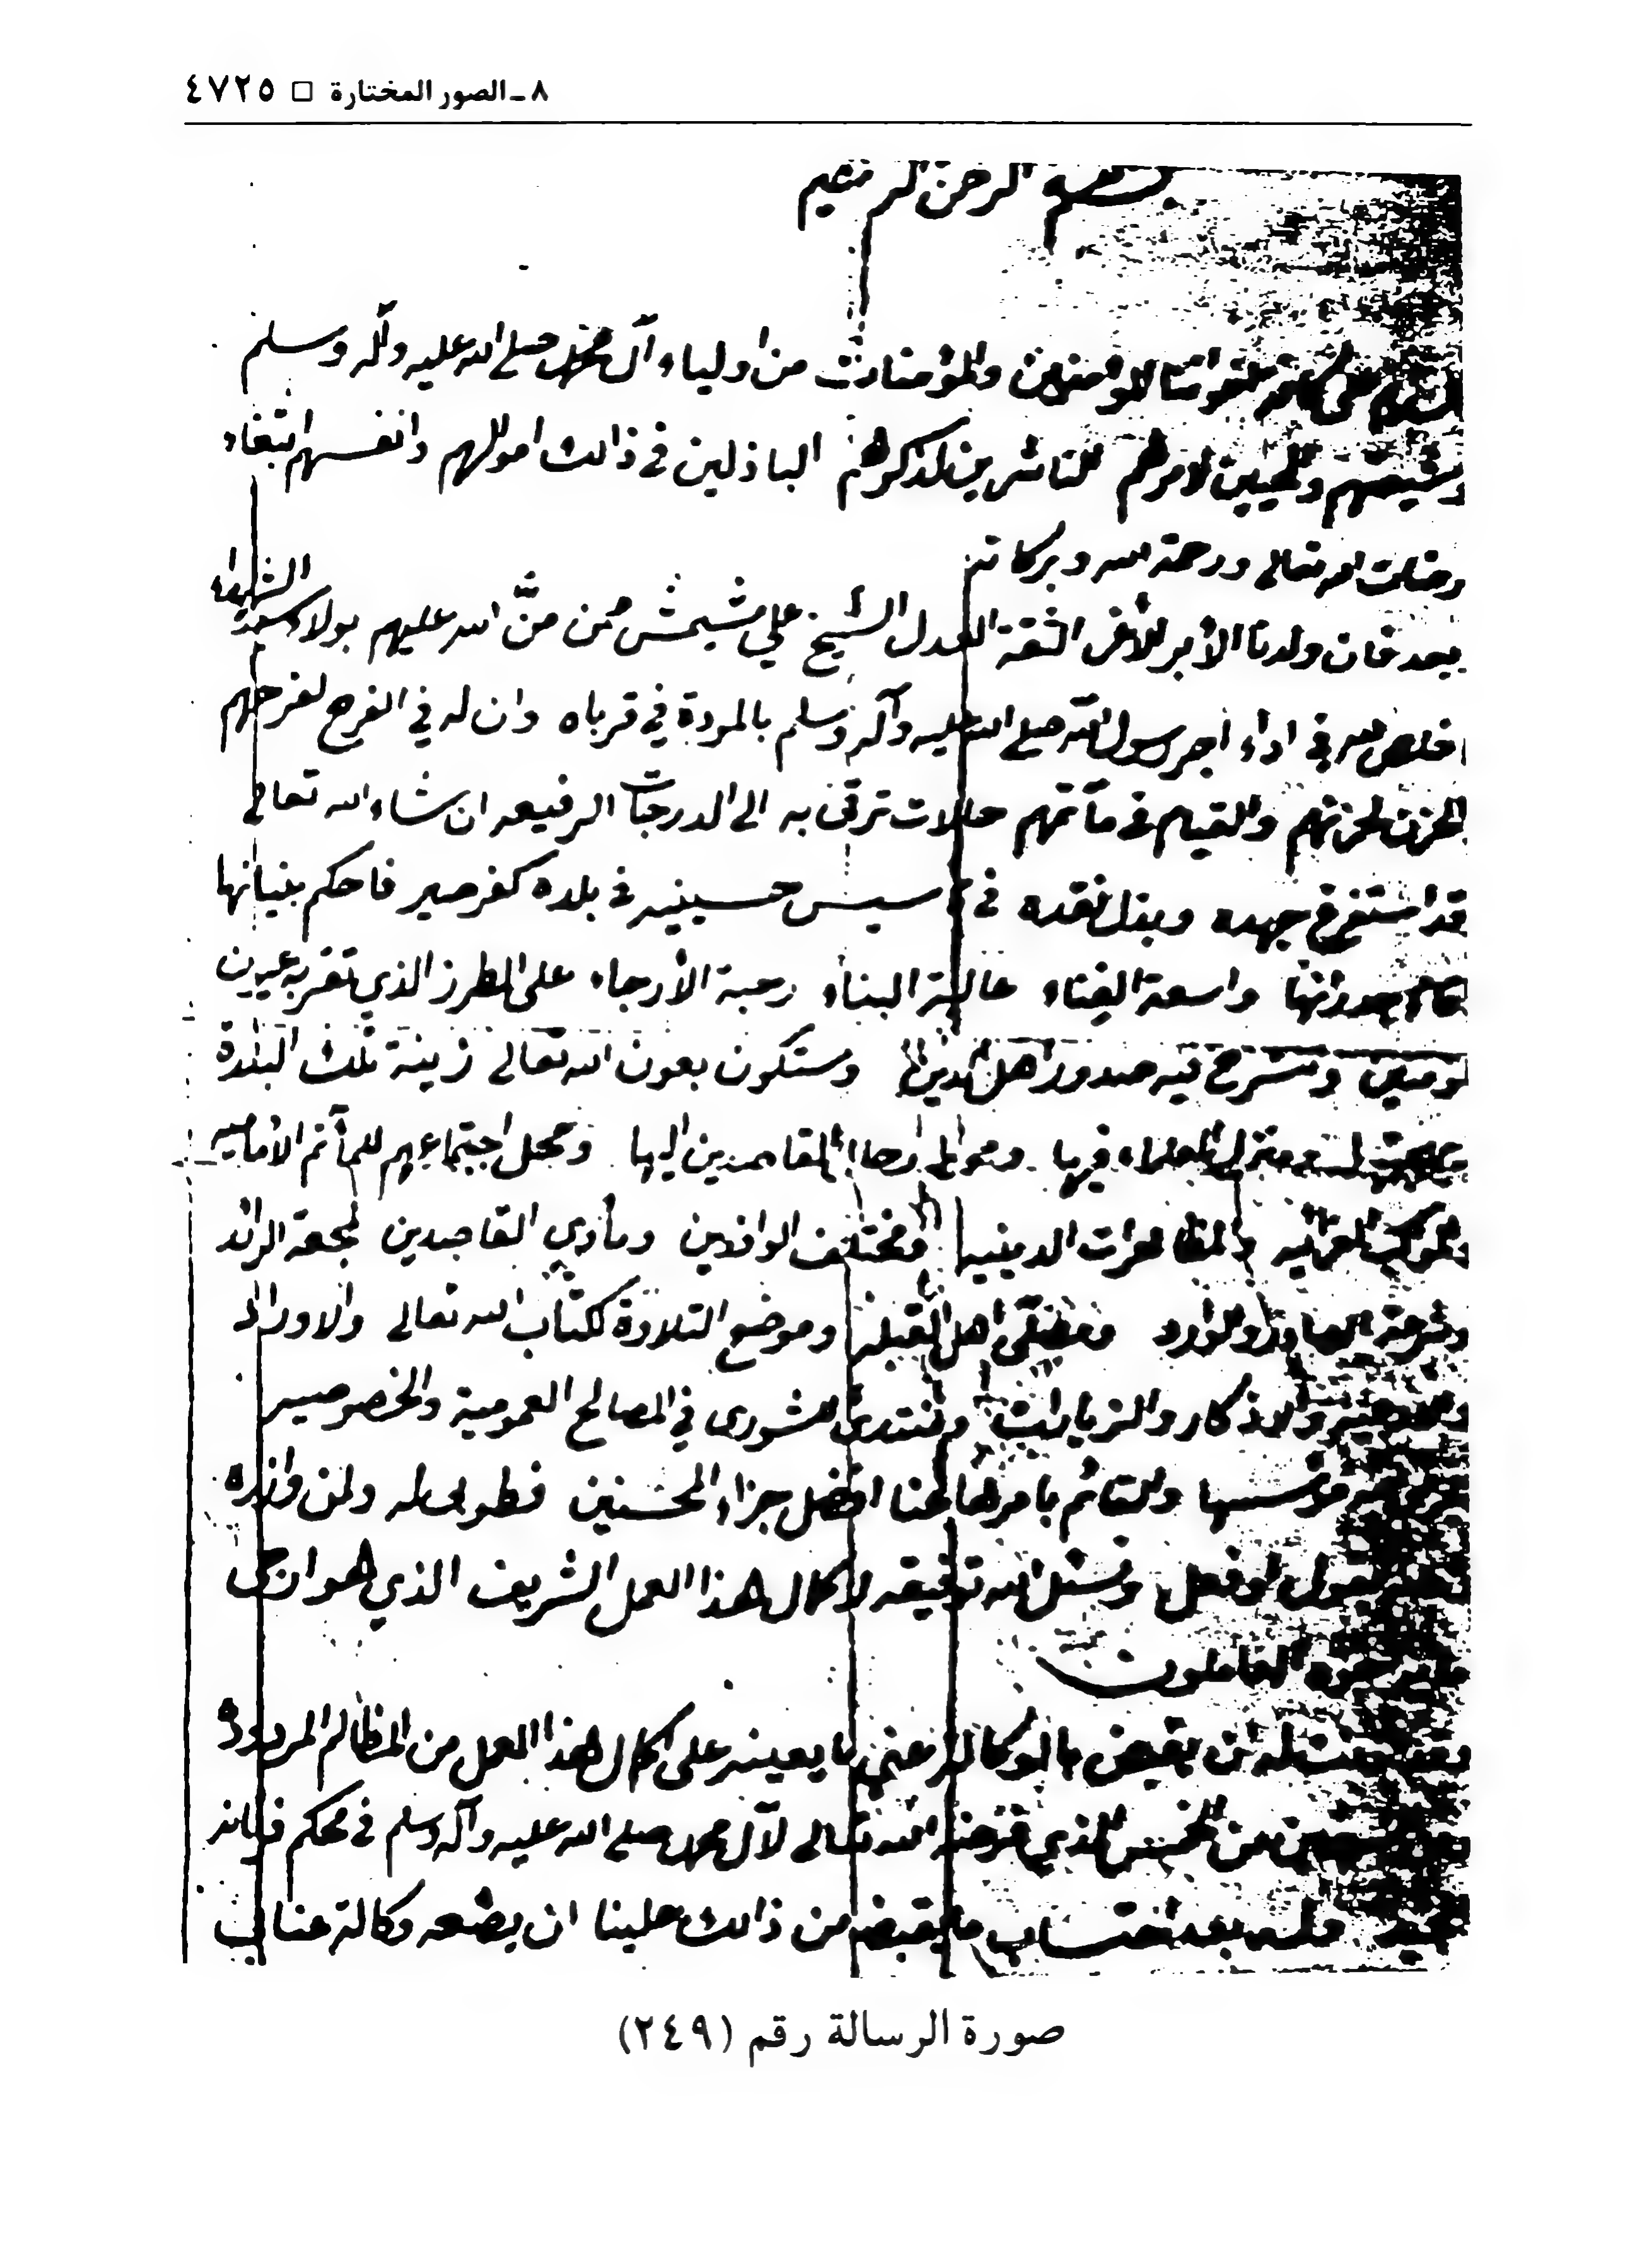 ٨ ـ الصور المختارة □ ٤٧٢٥
بسم الله الرحمن الرحيم
السلام على كافة اخواننا المؤمنين والمؤمنات من اولياء آل محمد صلى الله عليه وآله وسلم
وشيعتهم والمحيين لامرهم الناشرين لذكرهم الباذلين في ذالك اموالهم وانفسهم ابتغاء
مرضات الله تعالى ورحمة الله وبركاته
وبعد فان ولدنا الأبر الأغر الثقة العدل الشيخ علي شمس ممن منَّ الله عليهم بولاء سيد الشهداء
اخلص لله في اداء أجر رسول الله صلى الله عليه وآله وسلم بالمودة في قرباه وان له في الفرح لفرحهم
الحزن لحزنهم والقيام في مآتمهم حالات ترقى به الى الدرجات الرفيعه ان شاء الله تعالى
قد استفرغ جهده وبذل نقده في تأسيس حسينيه في بلده كفرصير فاحكم بنيانها
جدرانها واسعة الفناء عالية البناء رحبة الأرجاء على الطرز الذي تقر به عيون
المؤمنين وتنشرح فيه صدور اهل الدين وستكون بعون الله تعالى زينة تلك البلدة
ومنزل العلماء فيها القاصدين اليها ومحل اجتماعهم للمآتم الاماميه
والمواكب العزائيه والمظاهرات الدينيه ومختلف الوافدين ومأوى القاصدين نجعة الرائد
وشرعة الصادر والوارد وملتقى اهل القبله وموضع التلاوة لكتاب الله تعالى والاوراد
والادعيه والاذكار والزيارات ومنتدى للشورى في المصالح العمومية والخصوصيه
مؤسسها والقائم بامرها عنا افضل جزاء المحسنين فطوبى له ولمن وازره
بقول او فعل ونسئل الله توفيقه لاكمال هذا العمل الشريف الذي هو ارجى
ما يرجوه العاملون
وقد اذنت له ان يقبض بالوكالة عني ما يعينه على اكمال هذا العمل من المظالم المردودة
من الخمس الذي فرضه الله تعالى لآل محمد صلى الله عليه وآله وسلم في محكم فرقانه
المجيد وله بعد احتساب ما يقبضه من ذالك علينا ان يضعه وكالة عنا في
صورة الرسالة رقم (٢٤٩)